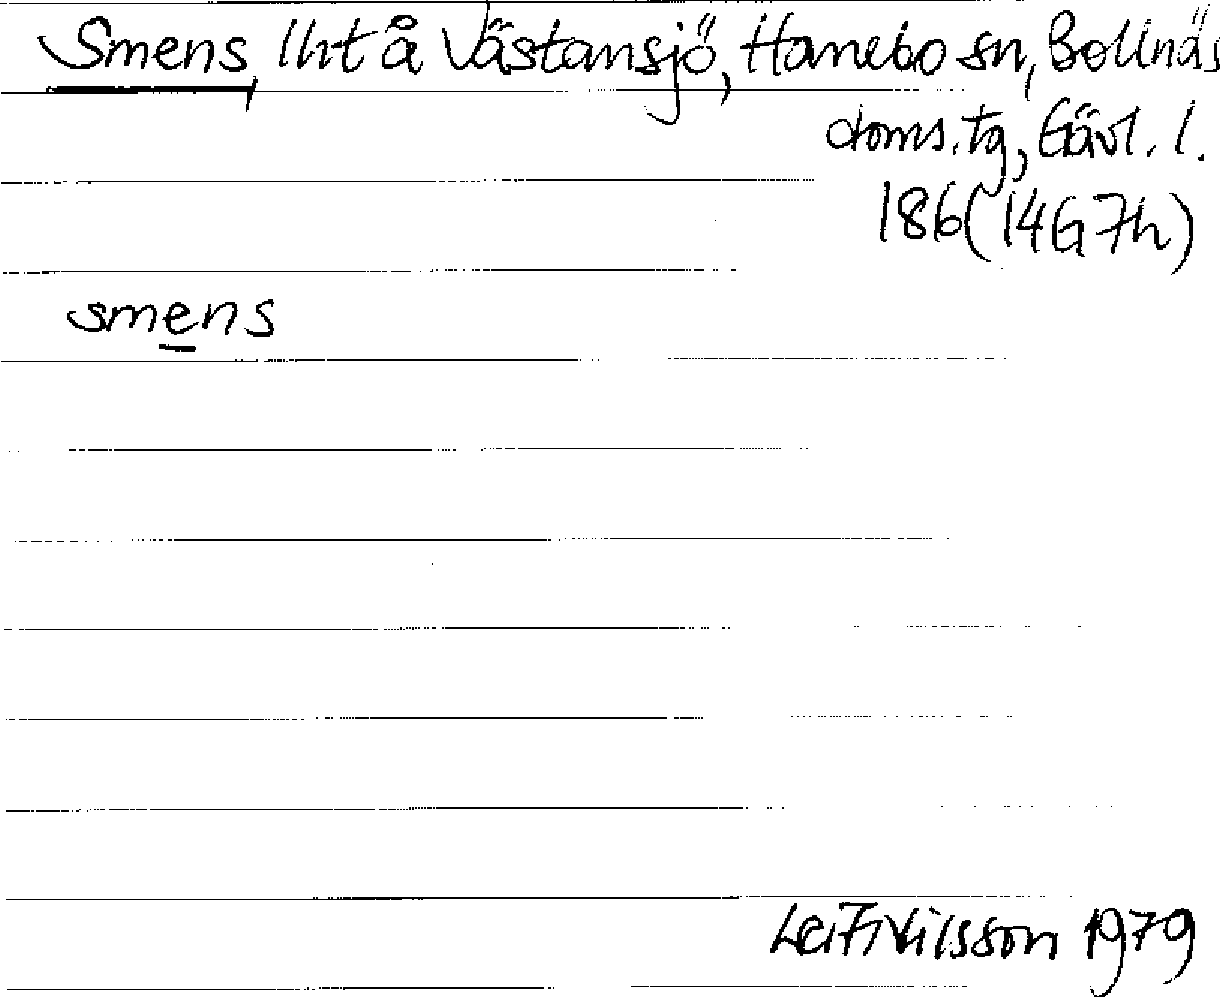 Smens, lht å Västansjö, Hanebo sn, Bollnäs
doms.tg, Gävl. l.
186 (14G7h)
smens
Leif Nilsson 1979